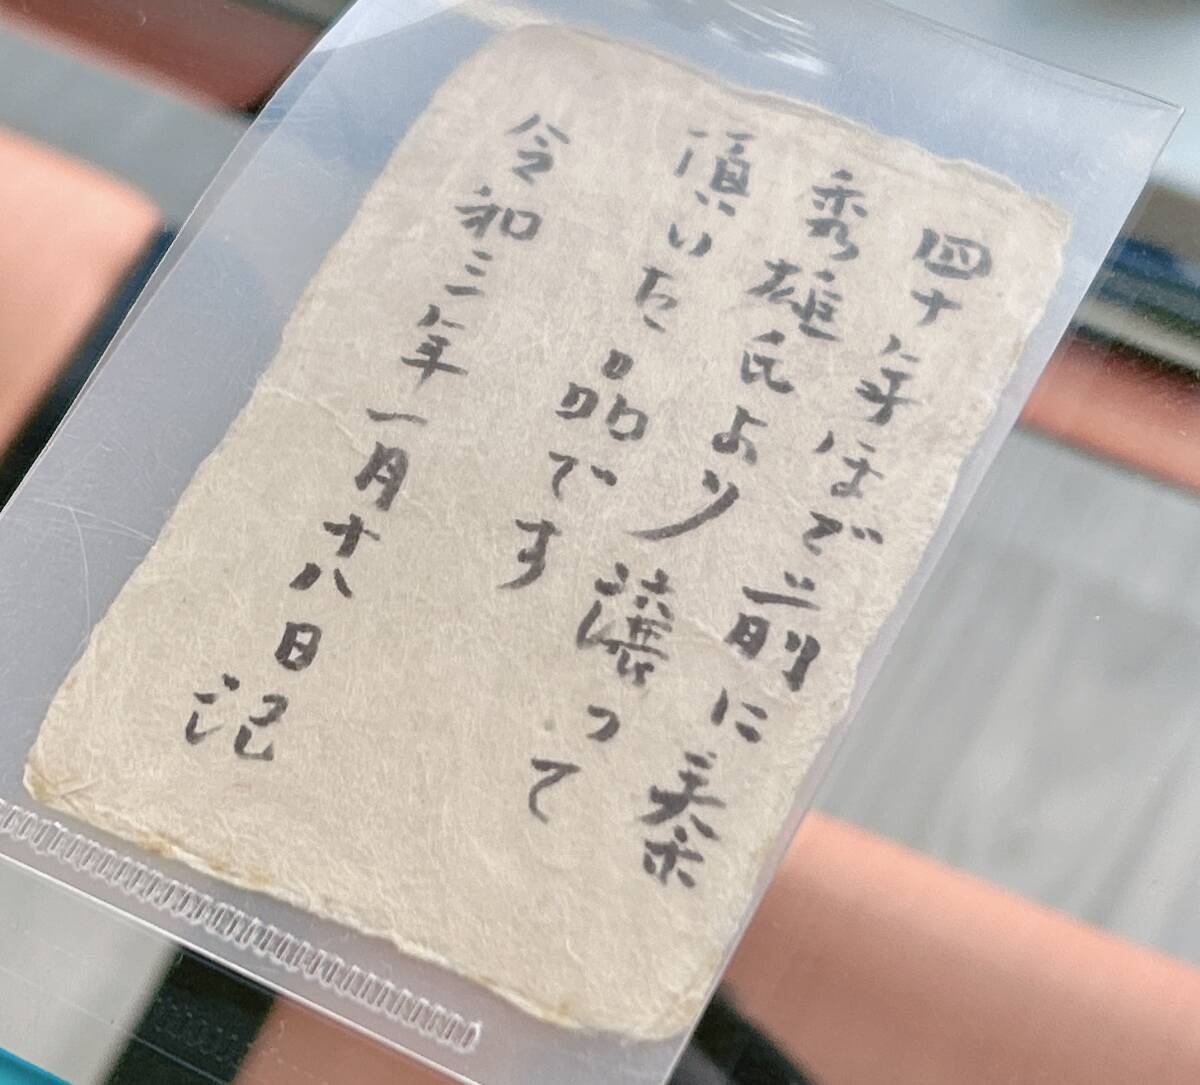 四十年ほど前に秦
秀雄氏より譲って
頂いた品です
令和三年一月十八日記